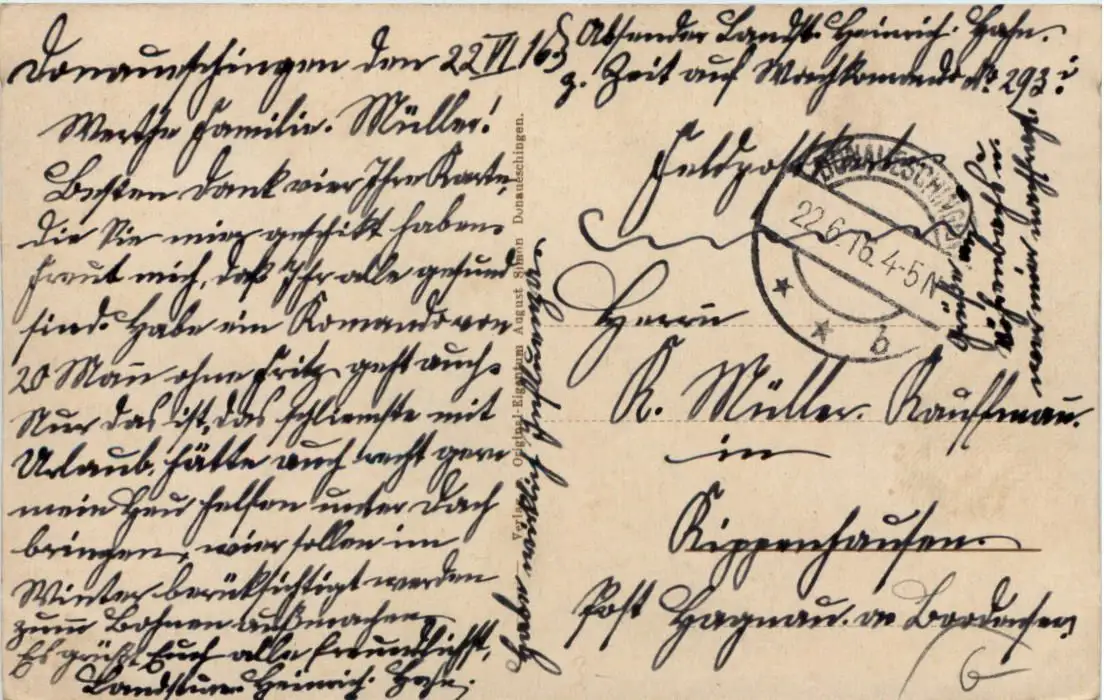 Donaueschingen den 22 VI 16.
Werthe Familie. Müller!
Besten Dank vier Ihre Karte,
die Sie mir geschikt haben.
Freut mich, daß Ihr alle gesund
sind. Habe ein Komando von
20 Mann ohne Fritz geht auch.
Nur das ist das schliemste mit
Urlaub, hätte auch recht gern
mein Heu helfen unter Dach
bringen, wier sollen im
Winter berüksichtigt werden
zum Bohnen außmachen,
Es grüßt Euch alle freundlichst,
Landsturm Heinrich. Hahn.
Verlag Original-Eigentum August Simon Donaueschingen.
Haben wirklich
Absender Landst. Heinrich. Hahn.
z. Zeit auf Wachkomando No. 293 i
Feldpostkarte
DONAUESCHINGEN
22.6.16. 4-5 N
* * b
Herrn
K. Müller. Kauffmann.
in
Kippenhausen.
Post Hagnau. a Bodensee.
6